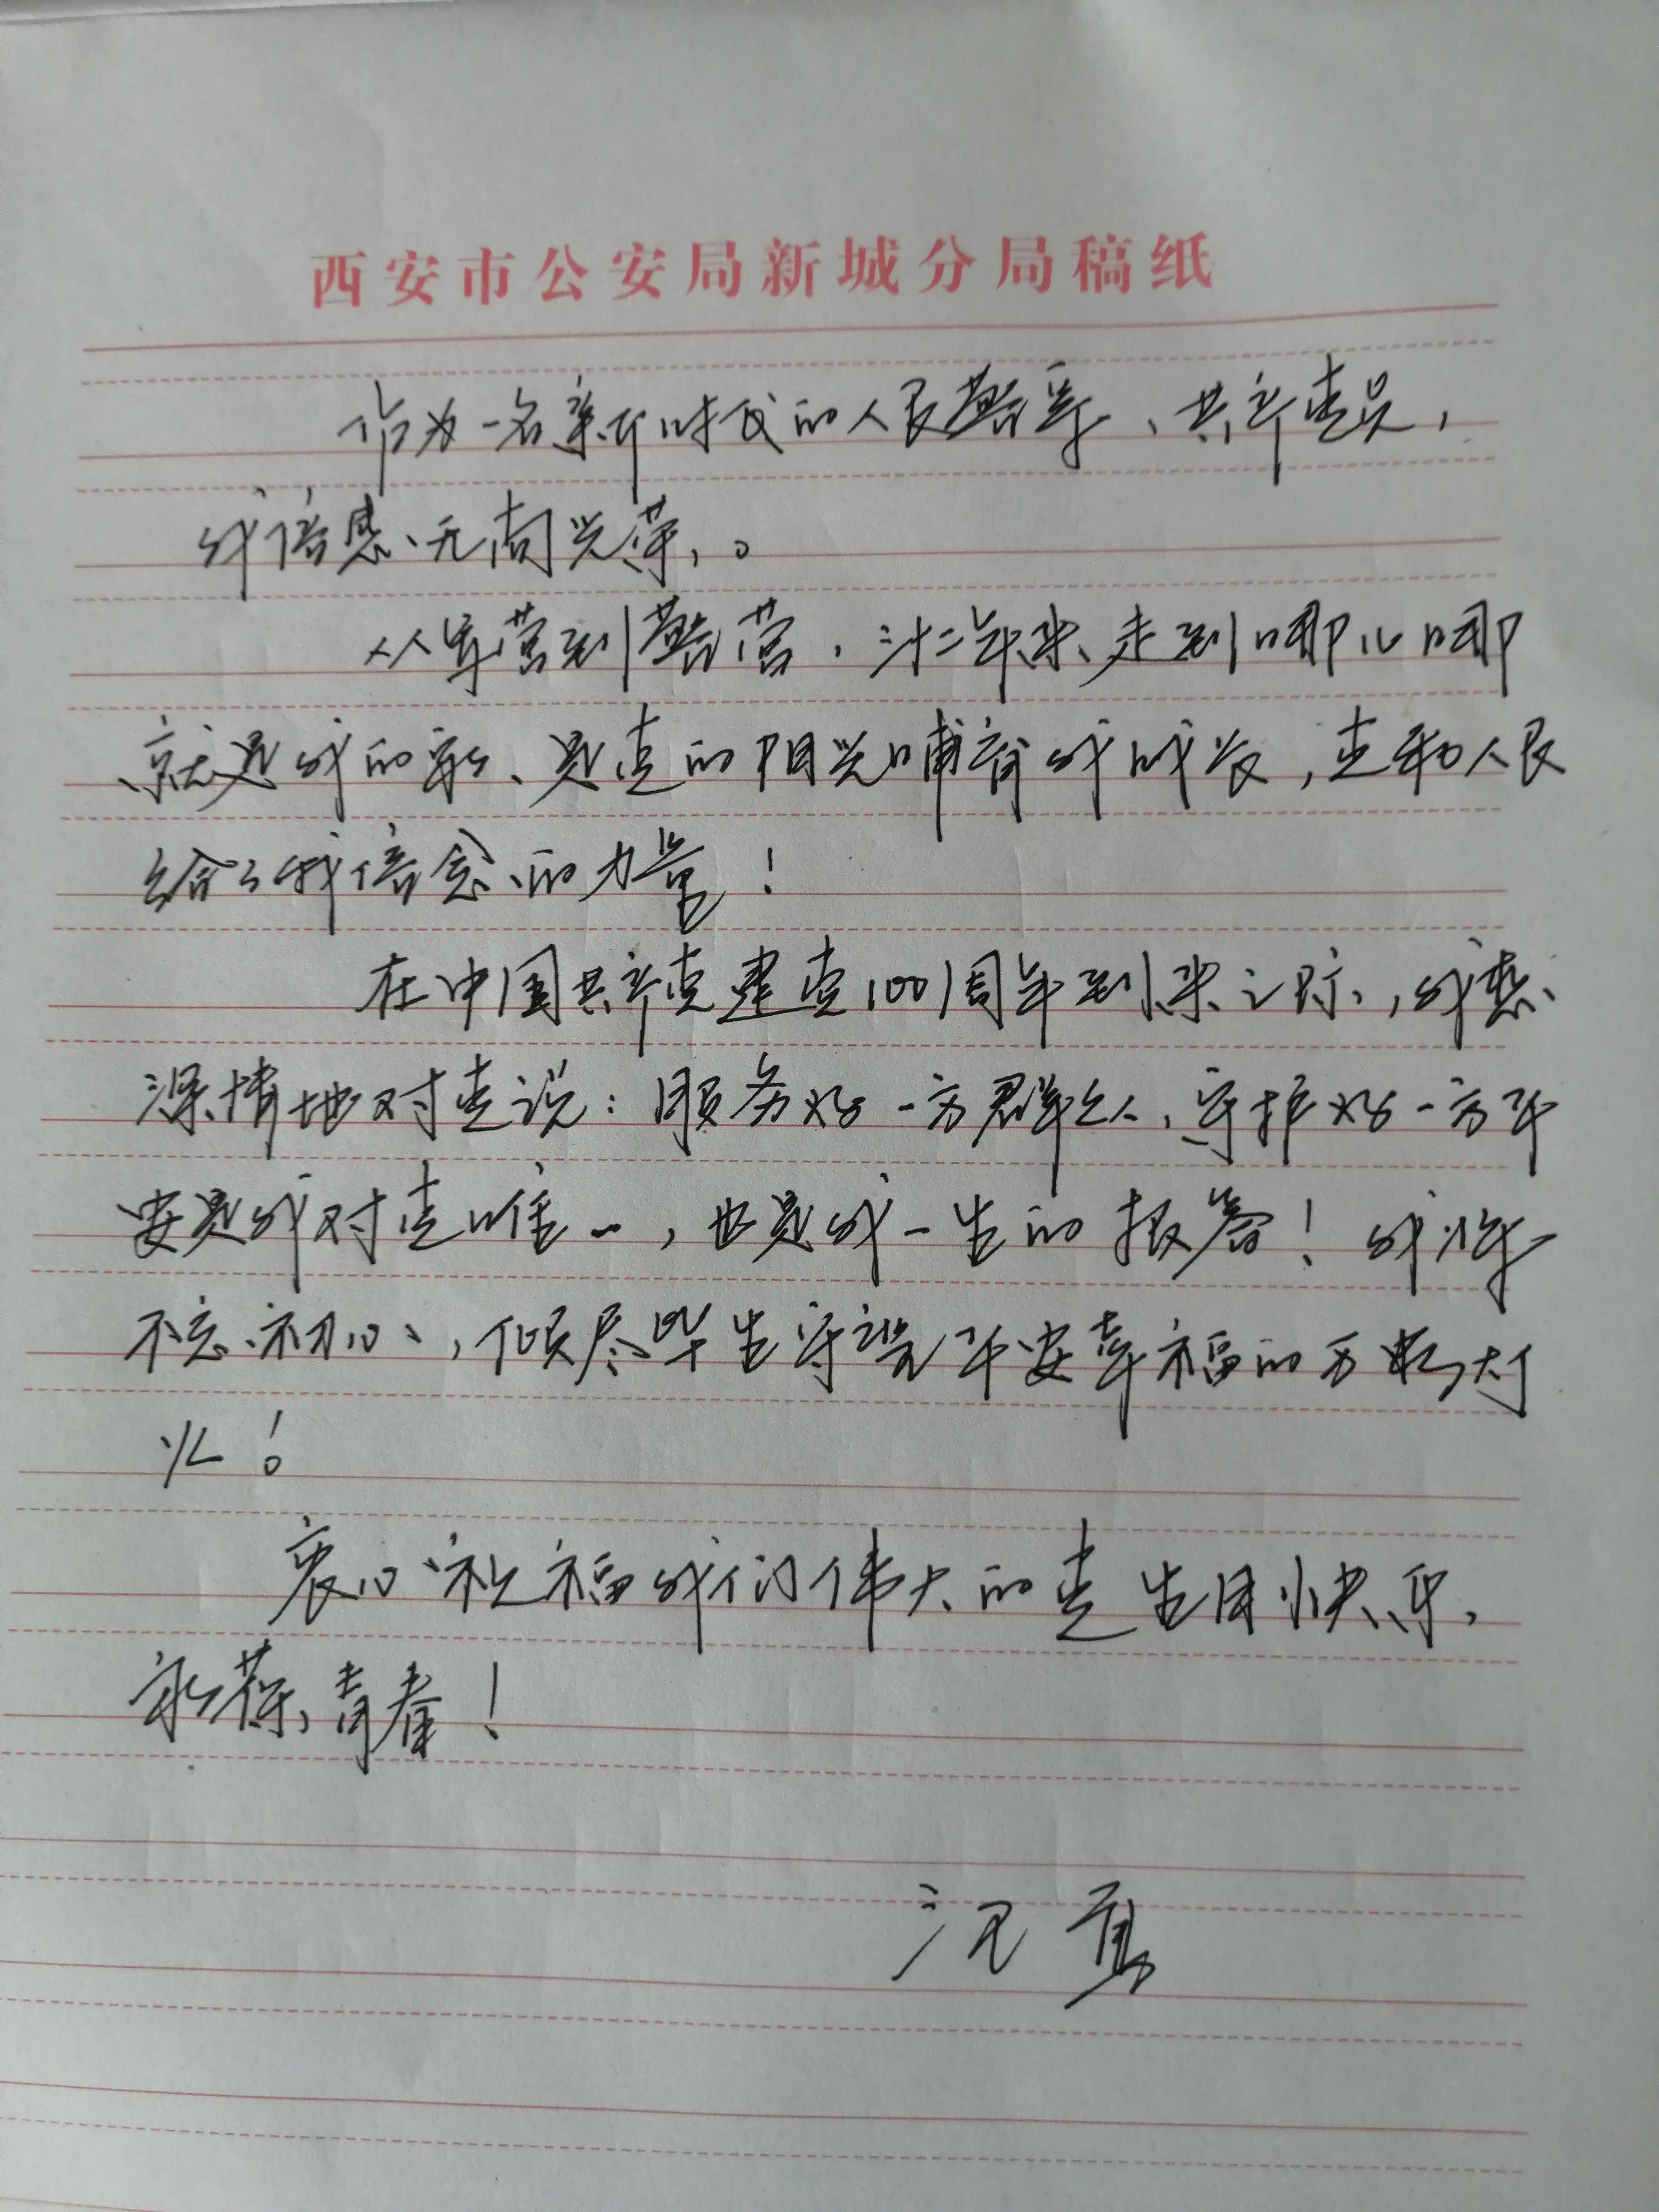 西安市公安局新城分局稿纸
作为一名新时代的人民警察、共产党员，
我倍感无尚光荣。
从军营到警营，三十二年来走到哪儿哪
就是我的家、是党的阳光哺育我成长，党和人民
给了我信念的力量！
在中国共产党建党100周年到来之际，我想
深情地对党说：服务好一方群众、守护好一方平
安是我对党唯一，也是我一生的报答！我将
不忘初心，倾尽毕生守望平安幸福的万家灯
火！
衷心祝福我们伟大的党生日快乐，
永葆青春！
汪勇